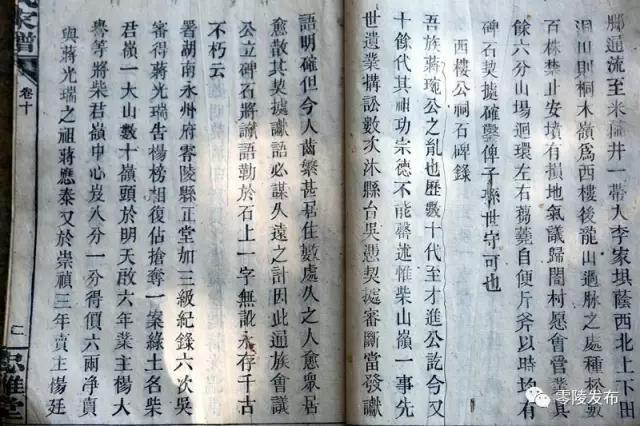 鄰通流至米樋井一帶入李家垻蔭西北上下田
洞川則桐木嶺爲西樓後龍山過脉之處種松數
百株禁止安墳有損地氣議歸闔村愿會管業其
餘六分山場迴環左右芻蕘自便斤斧以時均有
碑石契據確鑿俾子孫世守可也
西樓公祠石碑錄
吾族蔣琬公之亂也歷數十代至才進公訖今又
十餘代其祖功宗德不能罄述惟柴山嶺一事先
世遺業搆訟數次沐縣台吳憑契據審斷當發讞
語明確但今人齒繁甚居住數處久之人愈眾居
愈散其契據讞語必謀久遠之計因此通族會議
公立碑石將讞語勒於石上一字無訛永存千古
不朽云
署湖南永州府零陵縣正堂加三級紀錄六次吳
審得蔣光瑞告楊榜相復佔搶奪一案緣土名柴
君嶺一大山數十嶺頭於明天啟六年業主楊大
譽等將柴君嶺中心岌八分一分得價六兩淨賣
與蔣光瑞之祖蔣應泰又於崇禎三年賣主楊廷
家譜
卷十
二
忠雅堂
零陵发布